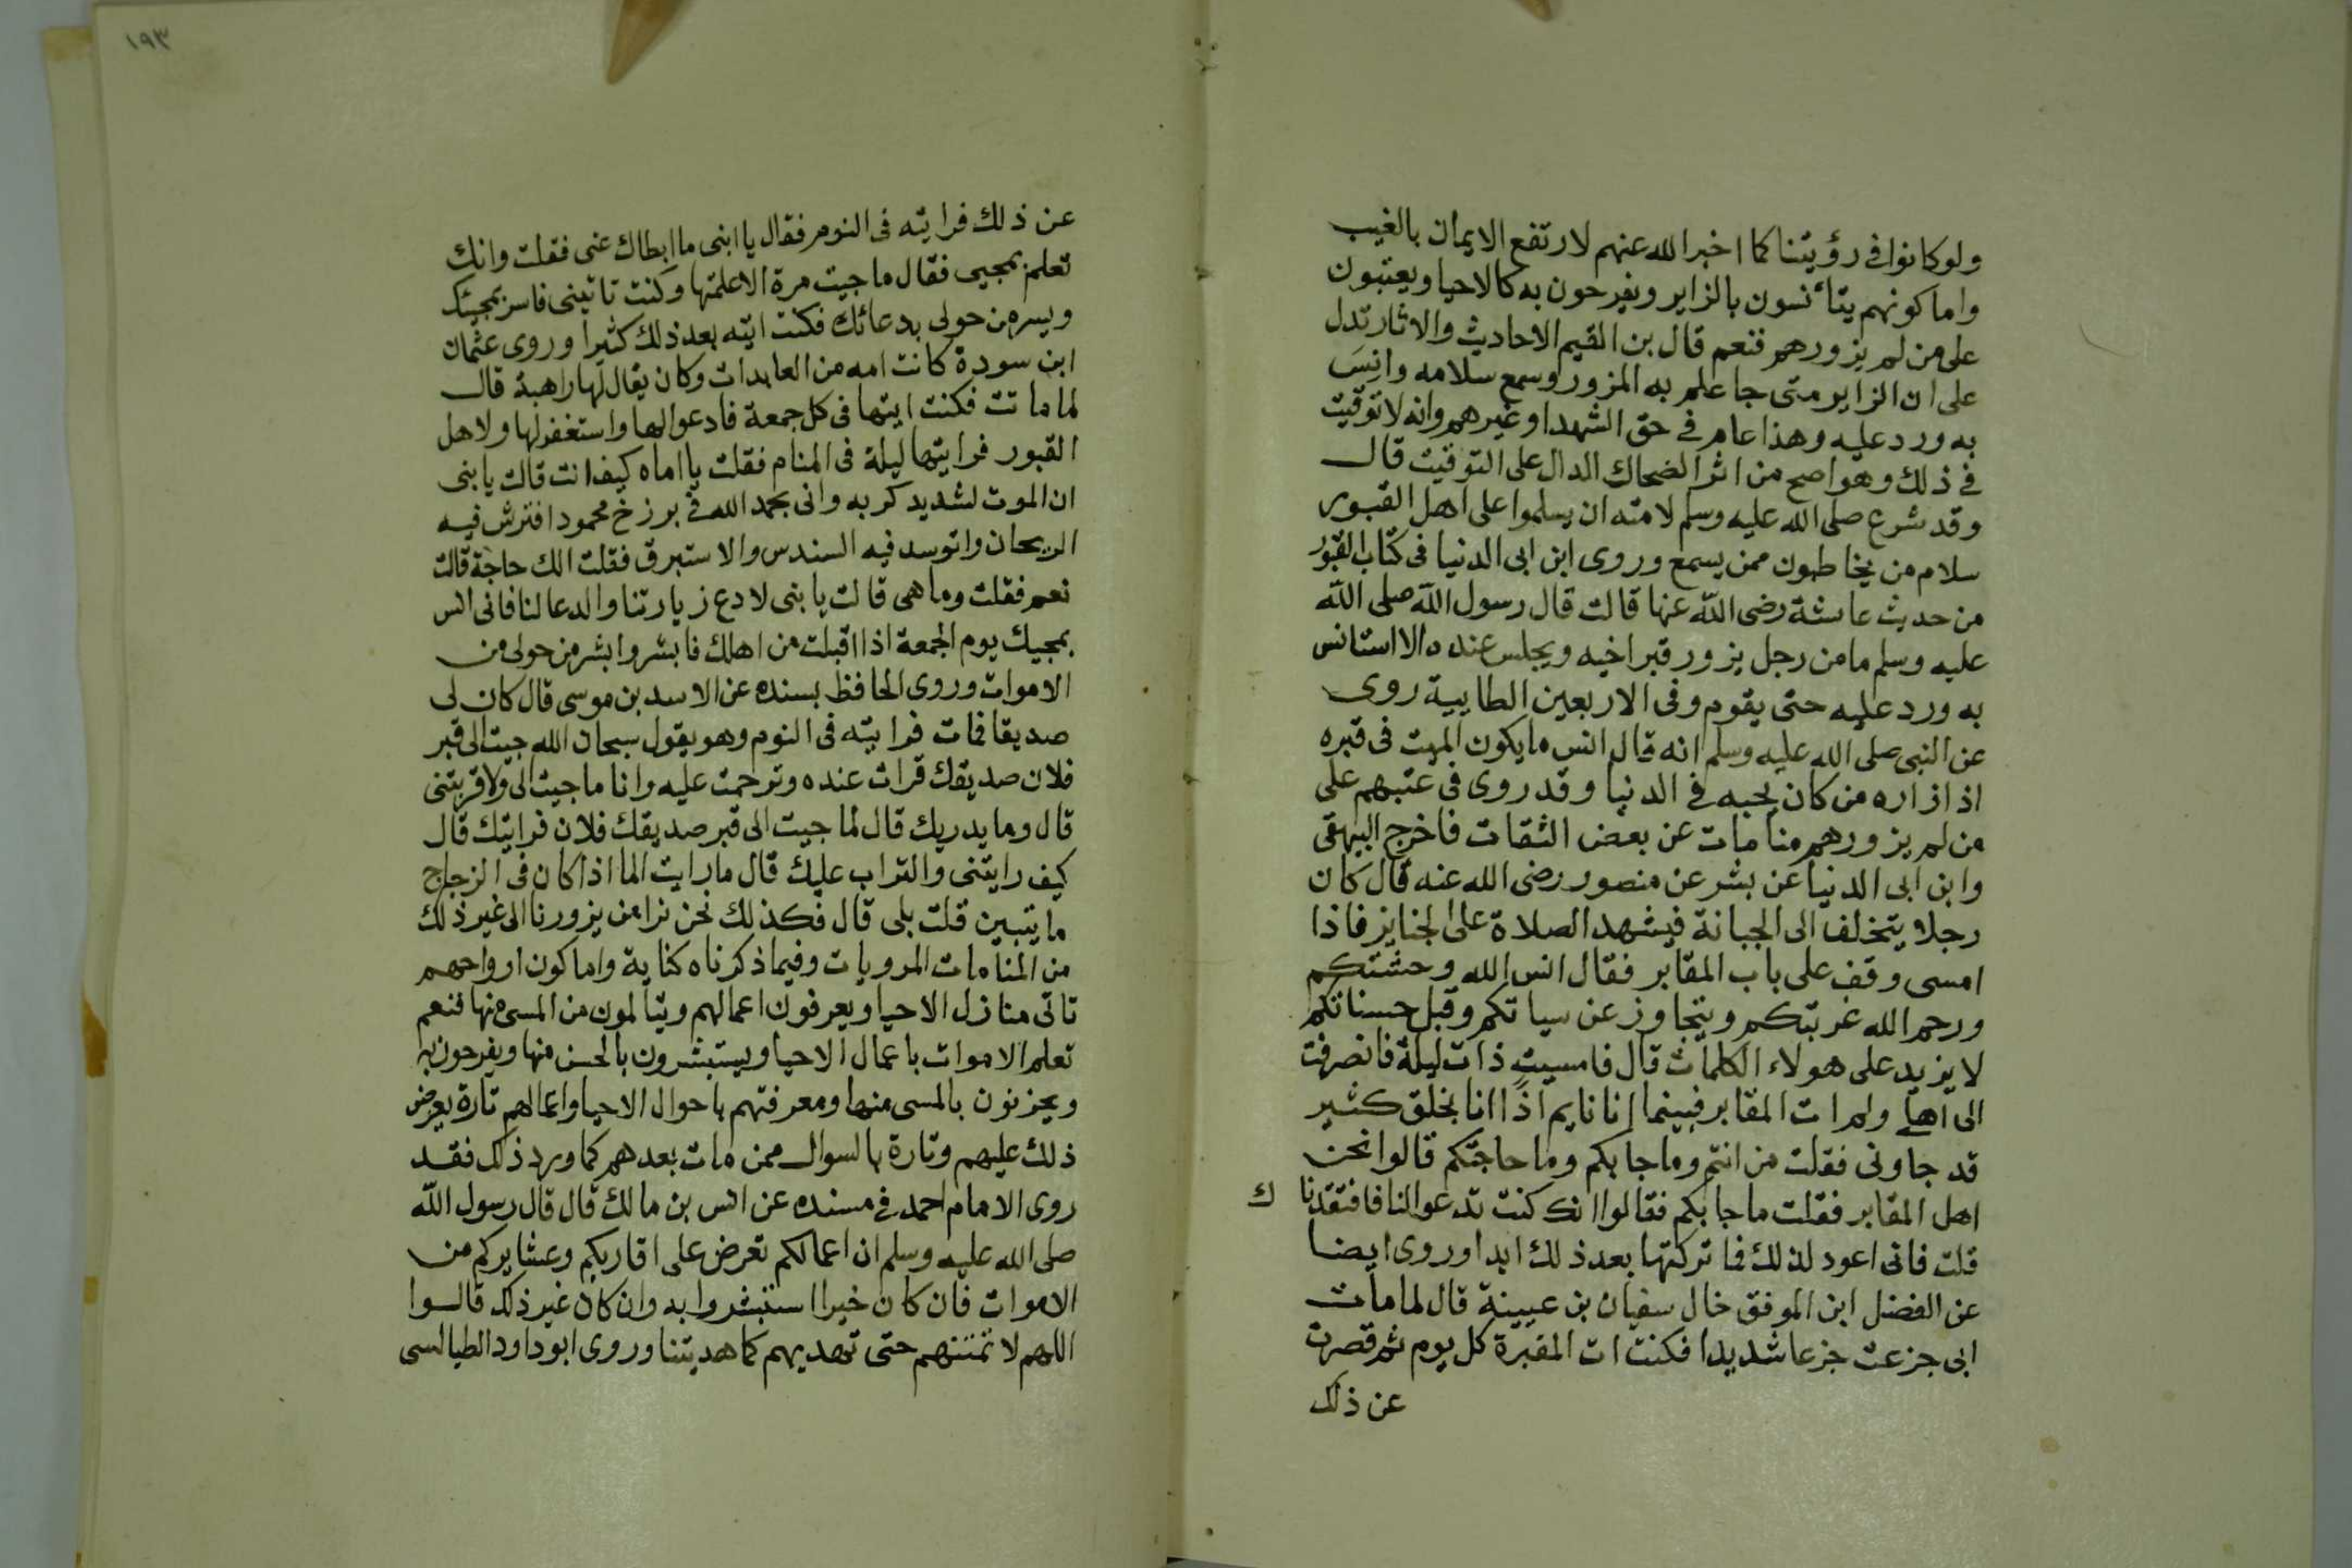 ولوكانوا في رؤيتنا كما اخبر الله عنهم لارتفع الايمان بالغيب
واما كونهم يتأنسون بالزاير ويفرحون به كالاحيا ويعتبون
على من لم يزورهم فنعم قال بن القيم الاحاديث والاثار تدل
على ان الزاير متى جا علم به المزور وسمع سلامه وانِسَ
به ورد عليه وهذا عام في حق الشهدا وغيرهم وانه لا توقيت
في ذلك وهو اصح من اثر الضحاك الدال على التوقيت قال
وقد شرع صلى الله عليه وسلم لامته ان يسلموا على اهل القبور
سلام من يخاطبون ممن يسمع وروى ابن ابى الدنيا فى كتاب القبور
من حديث عاشة رضى الله عنها قالت قال رسول الله صلى الله
عليه وسلم مامن رجل يزور قبر اخيه ويجلس عنده الا استانس
به ورد عليه حتى يقوم وفى الاربعين الطايية روى
عن النبى صلى الله عليه وسلم انه قال انس مايكون الميت فى قبره
اذا زاره من كان يحبه في الدنيا وقد روى في عتبهم على
من لم يزورهم منامات عن بعض الثقات فاخرج البيهقى
وابن ابى الدنيا عن بشر عن منصور رضى الله عنه قال كان
رجلا يتخلف الى الجبانة فيشهد الصلاة على الجنايز فاذا
امسى وقف على باب المقابر فقال انس الله وحشتكم
ورحم الله غربتكم ويتجاوز عن سياتكم وقبل حسناتكم
لا يزيد على هولاء الكلمات قال فامسيت ذات ليلة فانصرفت
الى اهلي ولم ات المقابر فبينما انا نايم اذًا انا بخلق كثير
قد جاونى فقلت من انتم وما جابكم وما حاجتكم قالوا نحن
اهل المقابر فقلت ما جابكم فقالوا انك كنت تدعوا لنا فافتقدنا ك
قلت فانى اعود لذلك فما تركتها بعد ذلك ابدا وروى ايضا
عن الفضل ابن الموفق خال سفيان بن عيينة قال لما مات
ابى جزعت جزعا شديدا فكنت ات المقبرة كل يوم ثم قصرت
عن ذلك
١٩٣
عن ذلك فرايته فى النوم فقال يا ابنى ما ابطاك عنى فقلت وانك
تعلم بمجيى فقال ماجيت مرة الا علمتها وكنت تاتينى فاسر بمجيئك
ويسر من حولى بدعائك فكنت ايته بعد ذلك كثيرا وروى عثمان
ابن سودة كانت امه من العابدات وكان يقال لها راهبة قال
لما ماتت فكنت ايتها فى كل جمعة فادعوا لها واستغفر لها ولاهل
القبور فرايتها ليلة فى المنام فقلت يا اماه كيف انت قالت يا بنى
ان الموت لشديد كربه وانى بحمد الله في برزخ محمود افترش فيه
الريحان واتوسد فيه السندس والاستبرق فقلت الك حاجة قالت
نعم فقلت وما هى قالت يا بنى لا دع زيارتنا والدعا لنا فانى انس
بمجيك يوم الجمعة اذا اقبلت من اهلك فابشر وابشر من حولى من
الاموات وروى الحافظ بسنده عن الاسد بن موسى قال كان لى
صديقا فمات فرايته فى النوم وهو يقول سبحان الله جيت الى قبر
فلان صديقك قرات عنده وترحمت عليه وانا ماجيت الى ولا قربتنى
قال وما يدريك قال لما جيت الى قبر صديقك فلان فرايتك قال
كيف رايتنى والتراب عليك قال ما رايت الما اذا كان فى الزجاج
ما يتبين قلت بلى قال فكذلك نحن نرا من يزورنا الى غير ذلك
من المنامات المرويات وفيما ذكرناه كفاية واما كون ارواحهم
تاتى منازل الاحيا ويعرفون اعمالهم ويتالمون من المسى منها فنعم
تعلم الاموات باعمال الاحيا ويستبشرون بالحسن منها ويفرحون به
ويحزنون بالمسى منها ومعرفتهم باحوال الاحيا واعمالهم تارة بعرض
ذلك عليهم وتارة بالسوال ممن مات بعدهم كما ورد ذلك فقد
روى الامام احمد في مسنده عن انس بن مالك قال قال رسول الله
صلى الله عليه وسلم ان اعمالكم تعرض على اقاربكم وعشايركم من
الاموات فان كان خيرا استبشروا به وان كان غير ذلك قالوا
اللهم لا تمتنهم حتى تهديهم كما هديتنا وروى ابوداود الطيالسى